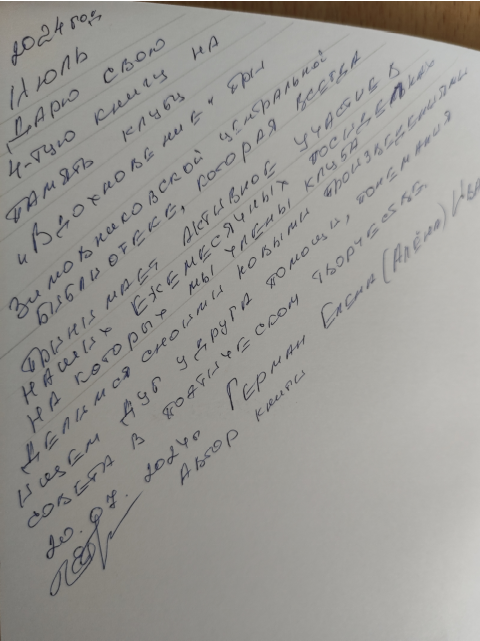 2024 год
Июль
Дарю свою
4-тую книгу на
память клубу
"Вдохновение" при
Зимовниковской центральной
библиотеке, которая всегда
принимает активное участие в
наших ежемесячных посиделках
на которых мы члены клуба
делимся своими новыми произведениями
ищем друг у друга помощи, понемания
совета в поэтическом творчестве.
20.07.2024г Герман Елена (Алёна) Ива
Автор книги